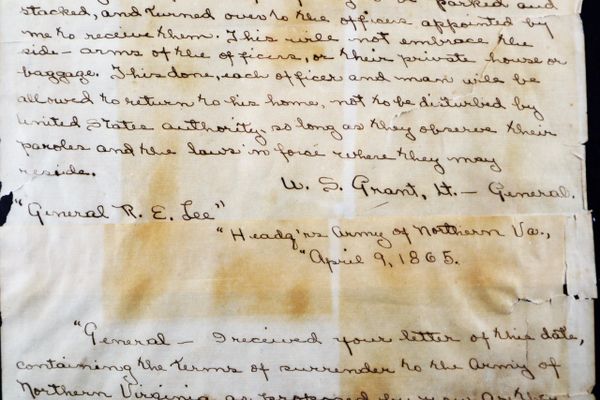 parked and
stacked, and turned over to the officers appointed by
me to receive them. This will not embrace the
side-arms of the officers, or their private house or
baggage. This done, each officer and man will be
allowed to return to his home, not to be disturbed by
United States authority, so long as they observe their
paroles and the laws in force where they may
reside.
W. S. Grant, Lt. - General.
"General R. E. Lee"
"Headq'rs Army of Northern Va.,
"April 9, 1865.
"General - I received your letter of this date,
containing the terms of surrender to the Army of
Northern Virginia as proposed by you. As they